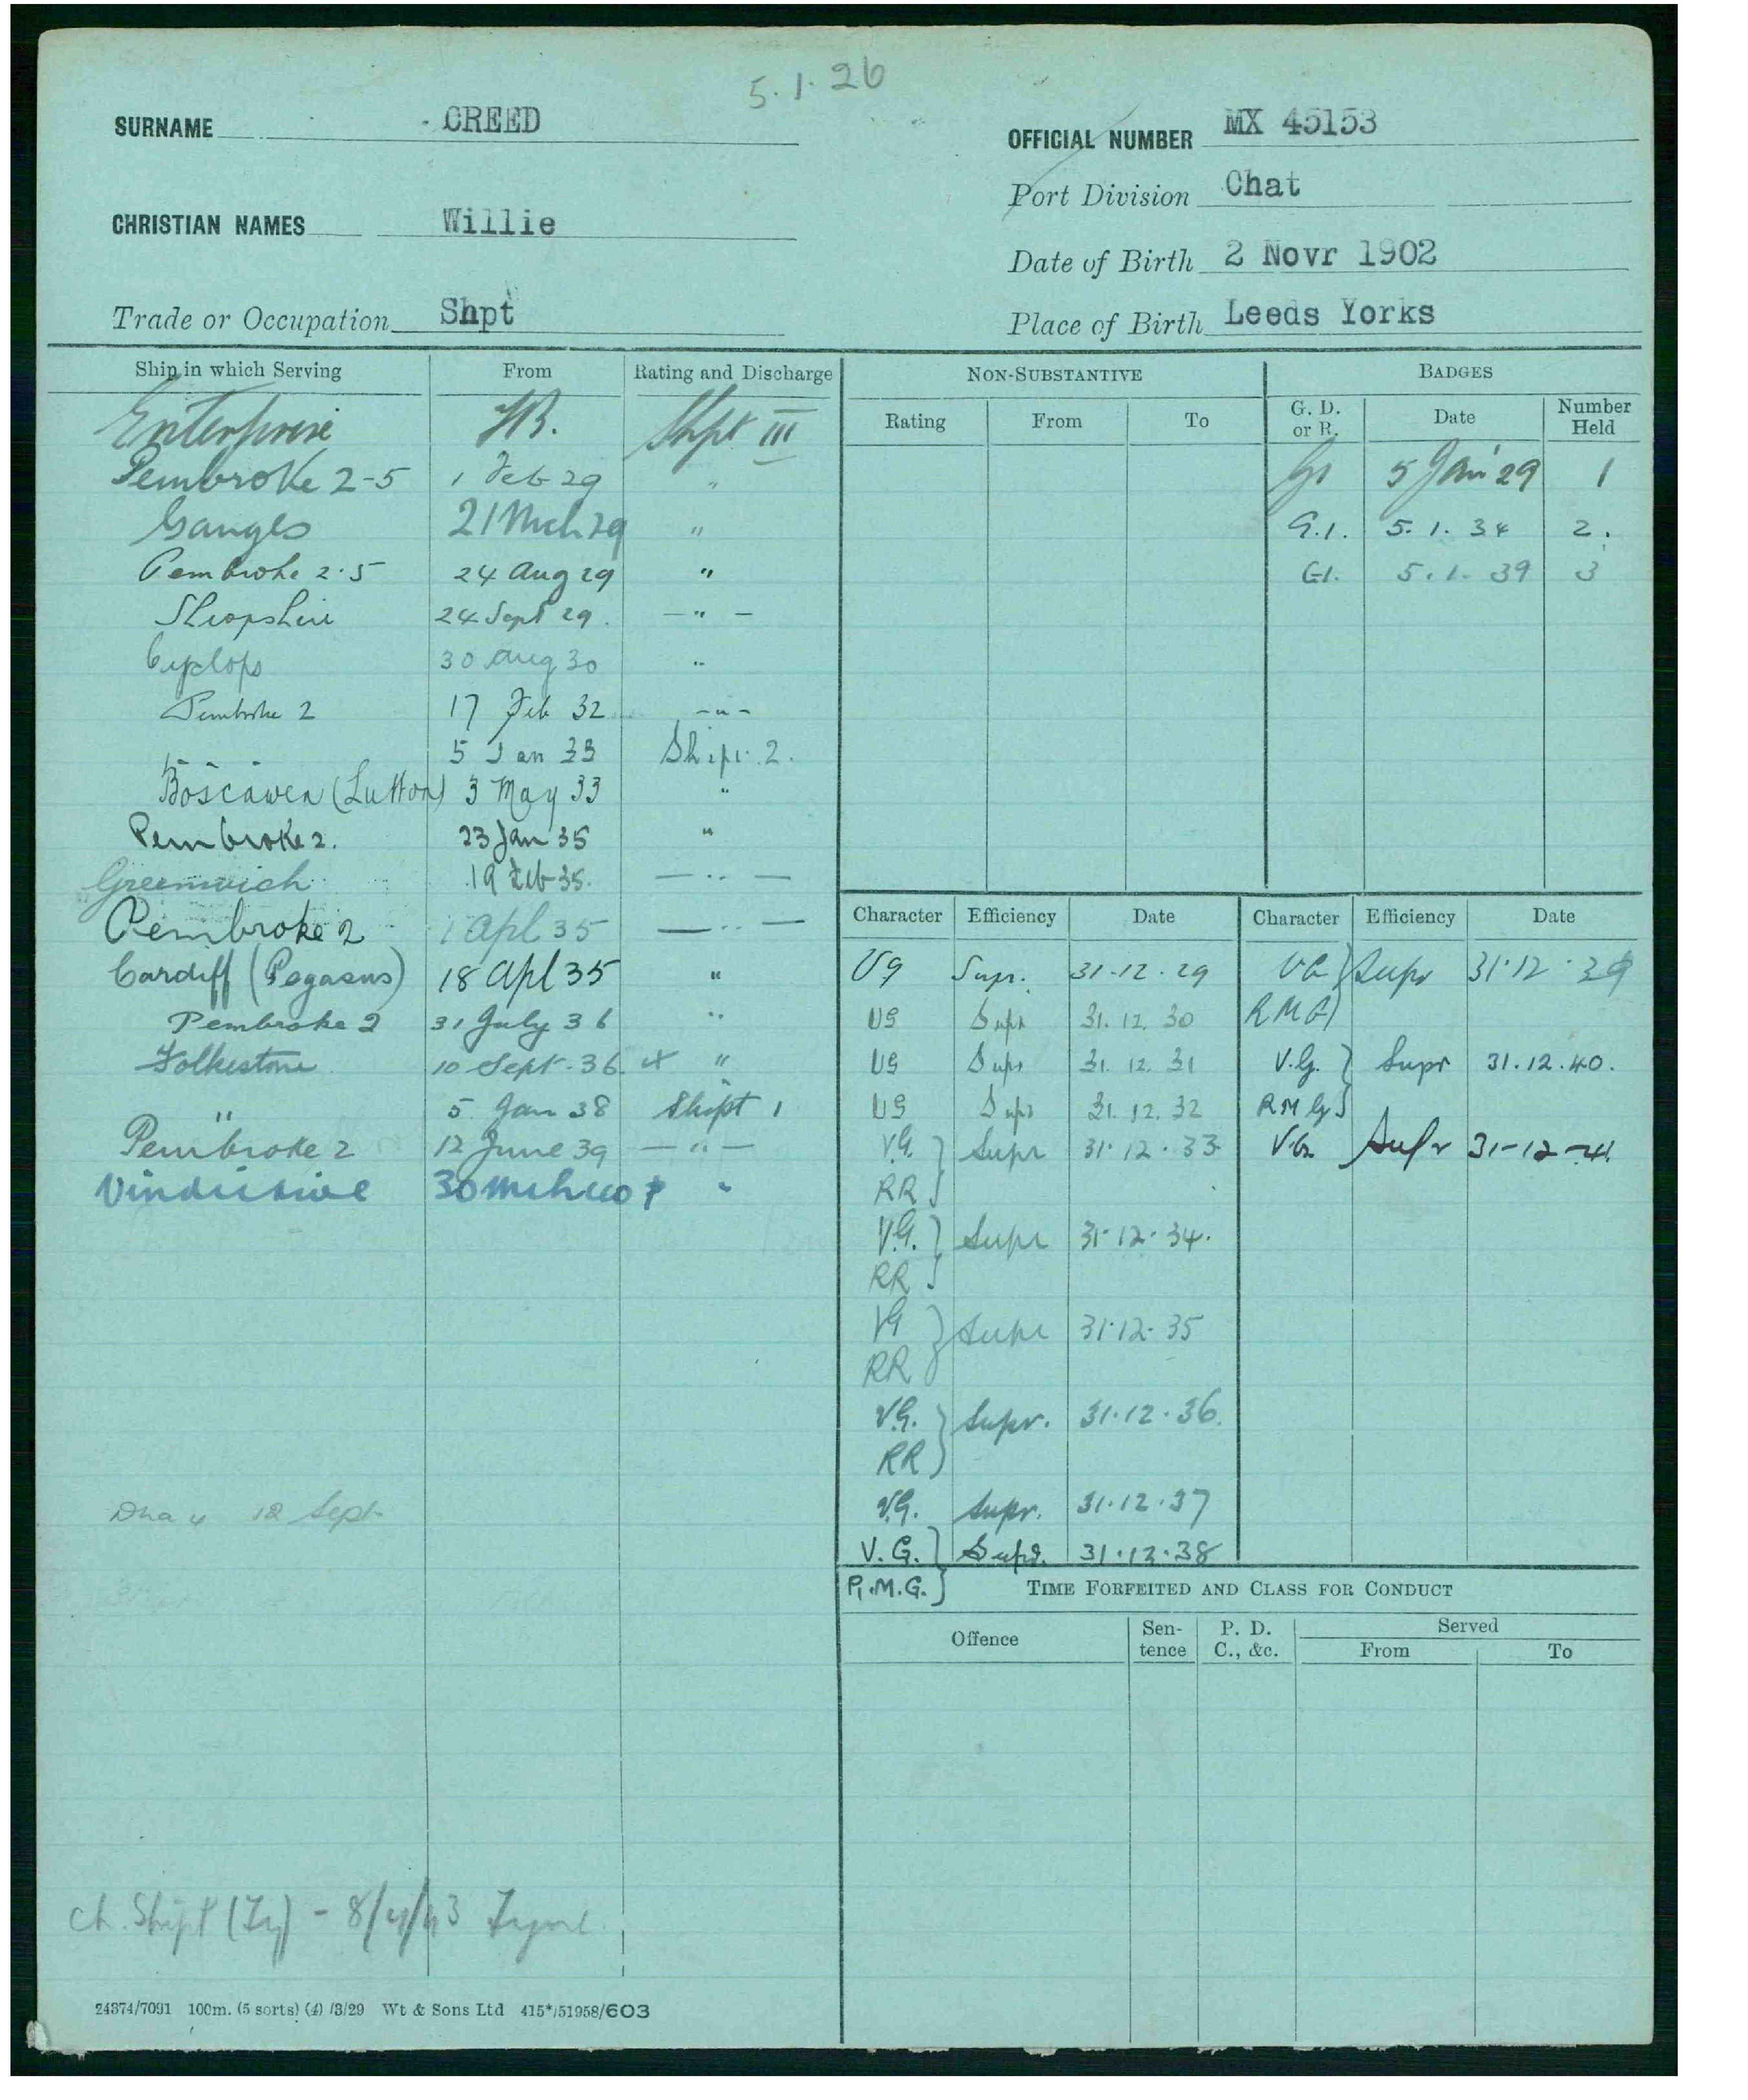 5.1.26
SURNAME CREED
OFFICIAL NUMBER MX 45153
Port Division Chat
CHRISTIAN NAMES Willie
Date of Birth 2 Novr 1902
Trade or Occupation Shpt
Place of Birth Leeds Yorks
Ship in which Serving From Rating and Discharge
Enterprise Shpt III
Pembroke 2-5 1 Feb 29 "
Ganges 21 Mch 29 "
Pembroke 2.5 24 Aug 29 "
Shropshire 24 Sept 29. — " —
Cyclops 30 Aug 30 "
Pembroke 2 17 Feb 32 - " -
" 5 Jan 33 Shipt. 2.
Boscawen (Lutton) 3 May 33 "
Pembroke 2. 23 Jan 35 "
Greenwich 19 Feb 35. — " —
Pembroke 2 1 Apl 35 — " —
Cardiff (Pegasus) 18 Apl 35 "
Pembroke 2 31 July 36 "
Folkestone 10 Sept. 36. "
" 5 Jan 38 Shipt 1
Pembroke 2 12 June 39 — " —
Vindictive 30 Mch 40 "
18 Sept
Ch. Shipt (Ty) - 8/4/43 Tyne
24374/7091 100m. (5 sorts) (4) /3/29 Wt & Sons Ltd 415*/51958/603
NON-SUBSTANTIVE
Rating From To
BADGES
G. D. or R. Date Number Held
G1 5 Jan 29 1
G.1. 5.1.34 2.
G1. 5.1.39 3
Character Efficiency Date Character Efficiency Date
VG Supr. 31-12.29
VG Supr 31.12.30
VG Supr 31.12.31
VG Supr 31.12.32
V.G. } Supr 31.12.33
RR
V.G. } Supr 31.12.34.
RR
VG } Supr 31.12.35
RR
V.G. } Supr. 31.12.36.
RR
V.G. Supr. 31.12.37
V.G. } Supr. 31.12.38
R.M.G.
VG } Supr 31.12.39
RMG
V.G. } Supr 31.12.40.
RMG
VG. Supr 31-12-41.
TIME FORFEITED AND CLASS FOR CONDUCT
Offence Sentence P. D. C., &c. Served
From To